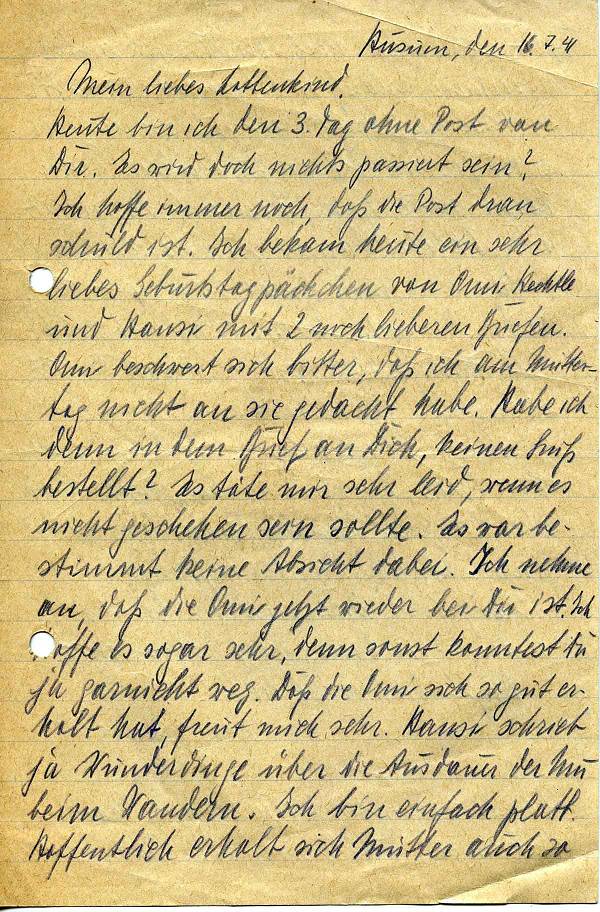 Husum, den 16.7.41
Mein liebes Lottenkind.
Heute bin ich den 3. Tag ohne Post von
Dir. Es wird doch nichts passiert sein?
Ich hoffe immer noch, daß die Post dran
schuld ist. Ich bekam heute ein sehr
liebes Geburtstagpäckchen von Omi
und Hansi mit 2 noch lieberen Briefen.
Omi beschwert sich bitter, daß ich am Mutter-
tag nicht an sie gedacht habe. Habe ich
denn in dem Brief an Dich, keinen Gruß
bestellt? Es täte mir sehr leid, wenn es
nicht geschehen sein sollte. Es war be-
stimmt keine Absicht dabei. Ich nehme
an, daß die Omi jetzt wieder bei Dir ist. Ich
hoffe es sogar sehr, denn sonst konntest Du
ja garnicht weg. Daß die Omi sich so gut er-
holt hat, freut mich sehr. Hansi schrieb
ja Wunderdinge über die Ausdauer der
beim Wandern. Ich bin einfach platt.
Hoffentlich erholt sich Mutter auch so